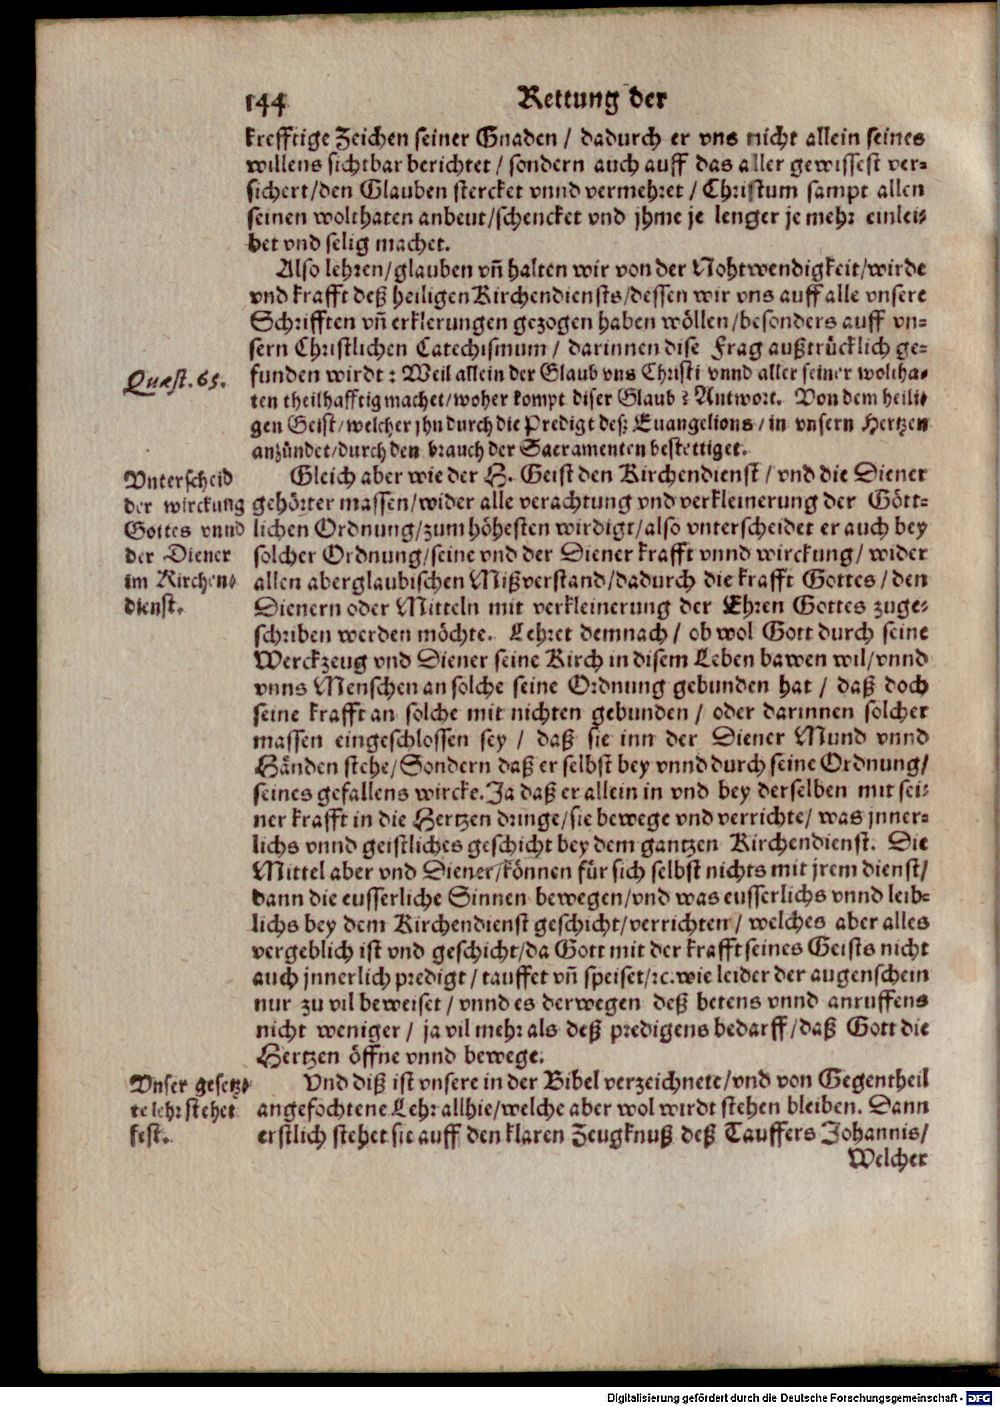 144 Rettung der
krefftige Zeichen seiner Gnaden / dadurch er vns nicht allein seines
willens sichtbar berichtet / sondern auch auff das aller gewissest ver-
sichert/den Glauben stercket vnnd vermehret / Christum sampt allen
seinen wolthaten anbeut/schencket vnd jhme je lenger je mehr einlei-
bet vnd selig machet.
Also lehren/glauben vn̄ halten wir von der Nohtwendigkeit/wirde
vnd krafft deß heiligen Kirchendiensts/dessen wir vns auff alle vnsere
Schrifften vn̄ erklerungen gezogen haben wöllen/besonders auff vn-
sern Christlichen Catechismum / darinnen dise Frag außtrücklich ge-
Quæst. 65.
funden wirdt : Weil allein der Glaub vns Christi vnnd aller seiner woltha-
ten theilhafftig machet/woher kompt diser Glaub ? Antwort. Von dem heili-
gen Geist/welcher jhn durch die Predigt deß Euangelions / in vnsern Hertzen
anzündet/durch den brauch der Sacramenten bestettiget.
Vnterscheid
der wirckung
Gottes vnnd
der Diener
im Kirchen-
dienst.
Gleich aber wie der H. Geist den Kirchendienst / vnd die Diener
gehörter massen/wider alle verachtung vnd verkleinerung der Gött-
lichen Ordnung/zum höhesten wirdigt/also vnterscheidet er auch bey
solcher Ordnung/seine vnd der Diener krafft vnnd wirckung/ wider
allen aberglaubischen Mißverstand/dadurch die krafft Gottes / den
Dienern oder Mitteln mit verkleinerung der Ehren Gottes zuge-
schriben werden möchte. Lehret demnach / ob wol Gott durch seine
Werckzeug vnd Diener seine Kirch in disem Leben bawen wil/vnnd
vnns Menschen an solche seine Ordnung gebunden hat / daß doch
seine krafft an solche mit nichten gebunden / oder darinnen solcher
massen eingeschlossen sey / daß sie inn der Diener Mund vnnd
Händen stehe/Sondern daß er selbst bey vnnd durch seine Ordnung/
seines gefallens wircke. Ja daß er allein in vnd bey derselben mit sei-
ner krafft in die Hertzen dringe/sie bewege vnd verrichte/ was jnner-
lichs vnnd geistliches geschicht bey dem gantzen Kirchendienst. Die
Mittel aber vnd Diener/können für sich selbst nichts mit jrem dienst/
dann die eusserliche Sinnen bewegen/vnd was eusserlichs vnnd leib-
lichs bey dem Kirchendienst geschicht/verrichten / welches aber alles
vergeblich ist vnd geschicht/da Gott mit der krafft seines Geists nicht
auch jnnerlich predigt / tauffet vn̄ speiset/ꝛc. wie leider der augenschein
nur zu vil beweiset / vnnd es derwegen deß betens vnnd anruffens
nicht weniger / ja vil mehr als deß predigens bedarff/daß Gott die
Hertzen öffne vnnd bewege.
Vnser gesetz-
te lehr stehet
fest.
Vnd diß ist vnsere in der Bibel verzeichnete/vnd von Gegentheil
angefochtene Lehr allhie/welche aber wol wirdt stehen bleiben. Dann
erstlich stehet sie auff den klaren Zeugknuß deß Tauffers Johannis/
Welcher
Digitalisierung gefördert durch die Deutsche Forschungsgemeinschaft - DFG